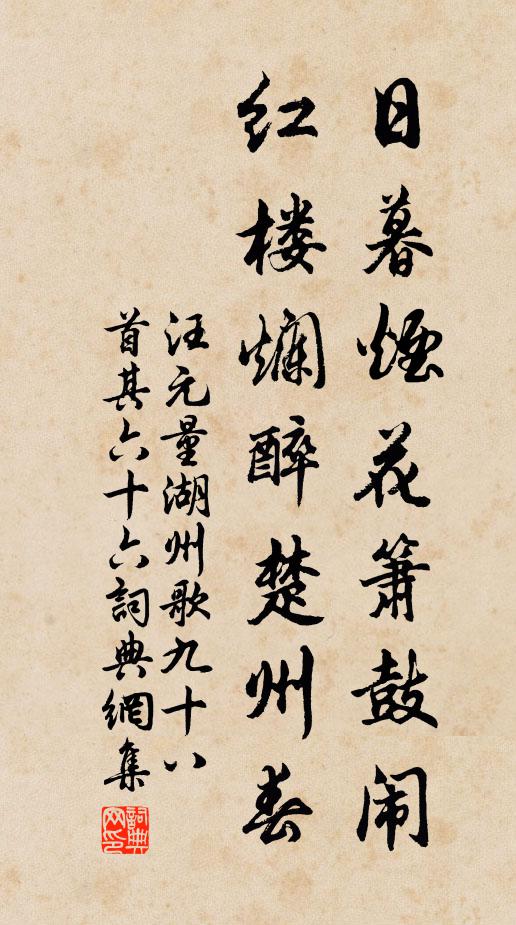 日暮煙花簫鼓闹
红楼爛醉楚州春
汪元量湖州歌九十八
首其六十六詞典網集
詞典网印